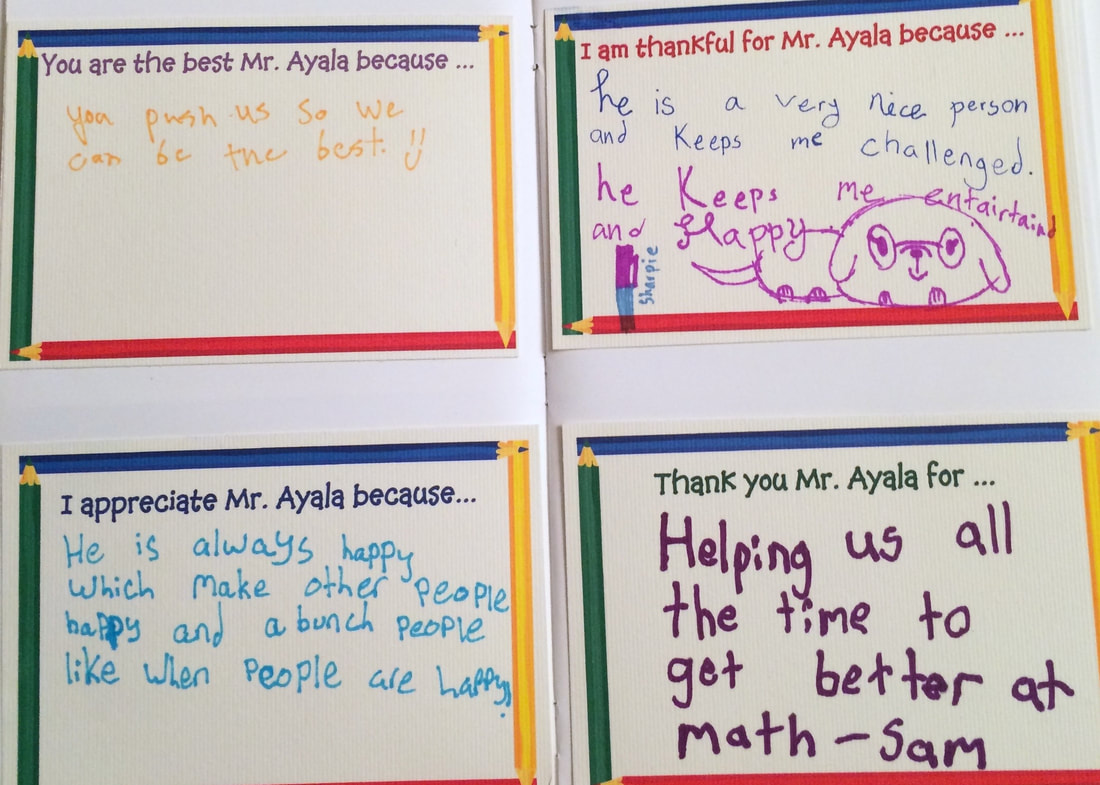 You are the best Mr. Ayala because ...
you push us so we
can be the best.
I am thankful for Mr. Ayala because ...
he is a very nice person
and Keeps me challenged.
he Keeps me entairtaind
and Happy
Sharpie
I appreciate Mr. Ayala because...
He is always happy
which make other people
happy and a bunch people
like when people are happy!
Thank you Mr. Ayala for ...
Helping us all
the time to
get better at
math - Sam